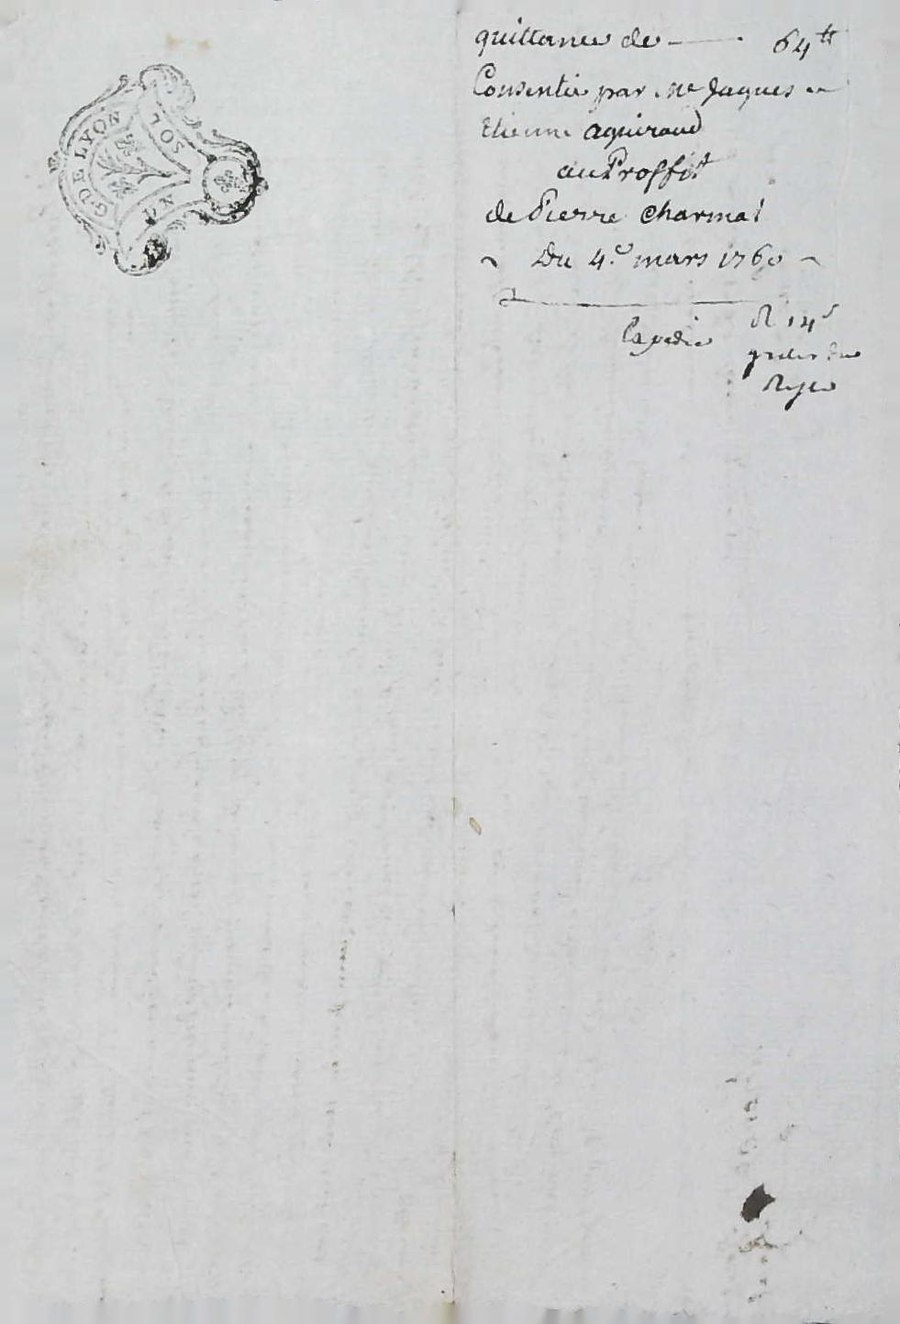 G. DE LYON
UN SOL
quittance de 64tt
Consentie par Me Jaques et
Etienne aguiraud
au Proffit
de Pierre Charmat
Du 4e mars 1760
Expedie
R 14s